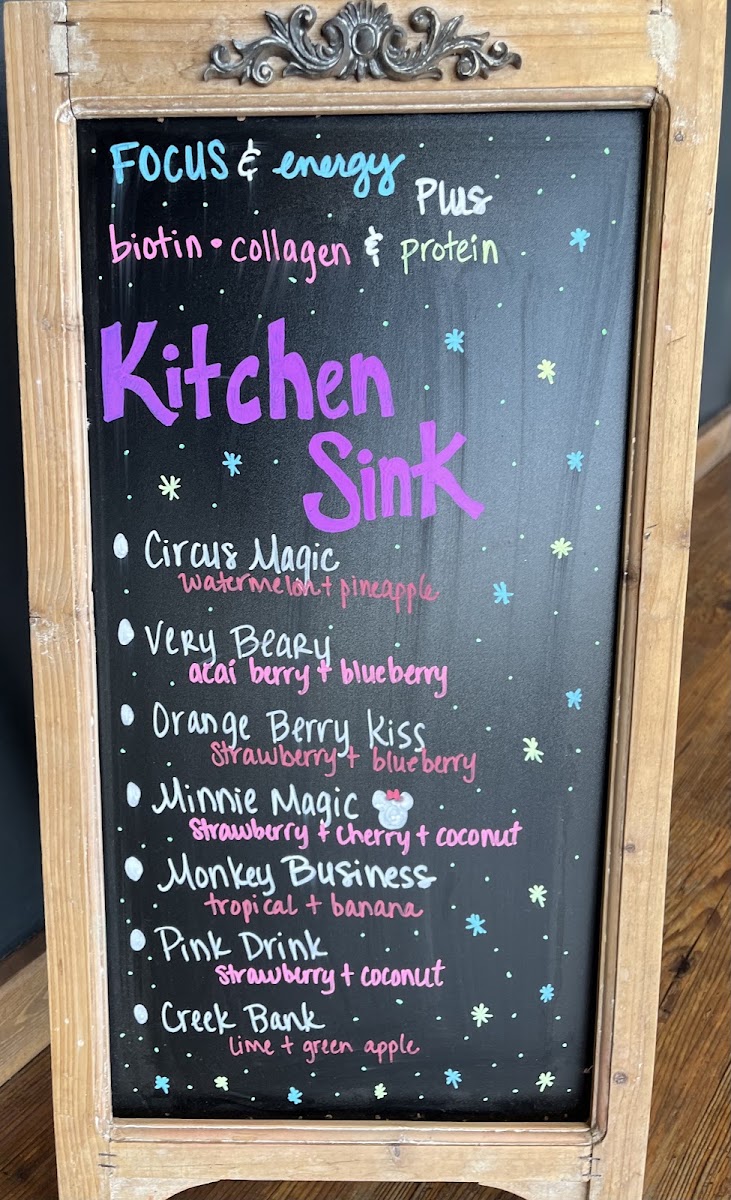 FOCUS & energy
Plus
biotin • collagen & protein
Kitchen
Sink
• Circus Magic
watermelon + pineapple
• Very Beary
acai berry + blueberry
• Orange Berry Kiss
Strawberry + blueberry
• Minnie Magic
Strawberry + cherry + coconut
• Monkey Business
tropical + banana
• Pink Drink
Strawberry + coconut
• Creek Bank
lime + green apple